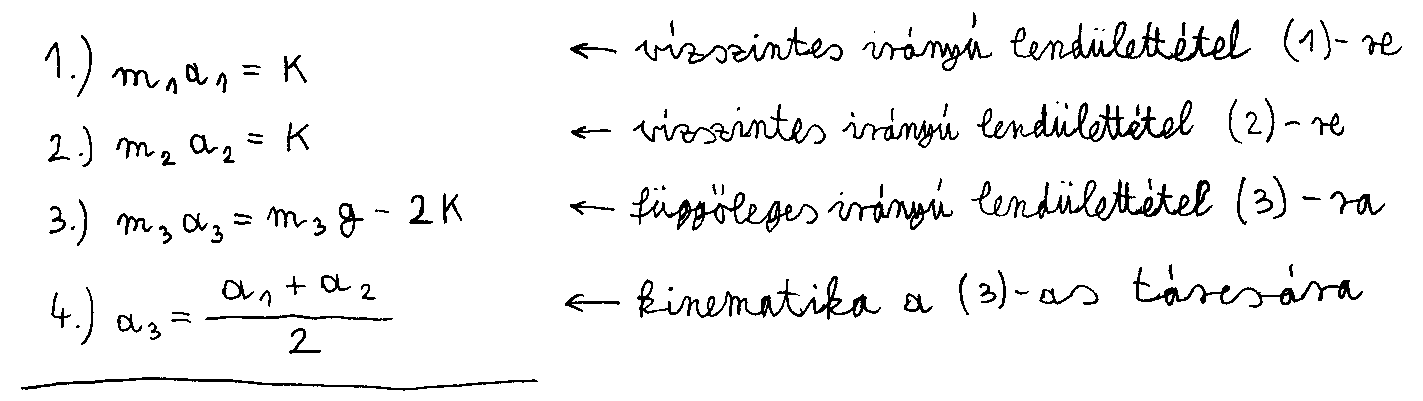 1.) m₁a₁ = K ← vízszintes irányú lendülettétel (1)-re
2.) m₂a₂ = K ← vízszintes irányú lendülettétel (2)-re
3.) m₃a₃ = m₃g - 2K ← függőleges irányú lendülettétel (3)-ra
4.) a₃ = (a₁ + a₂)/2 ← kinematika a (3)-as tárcsára